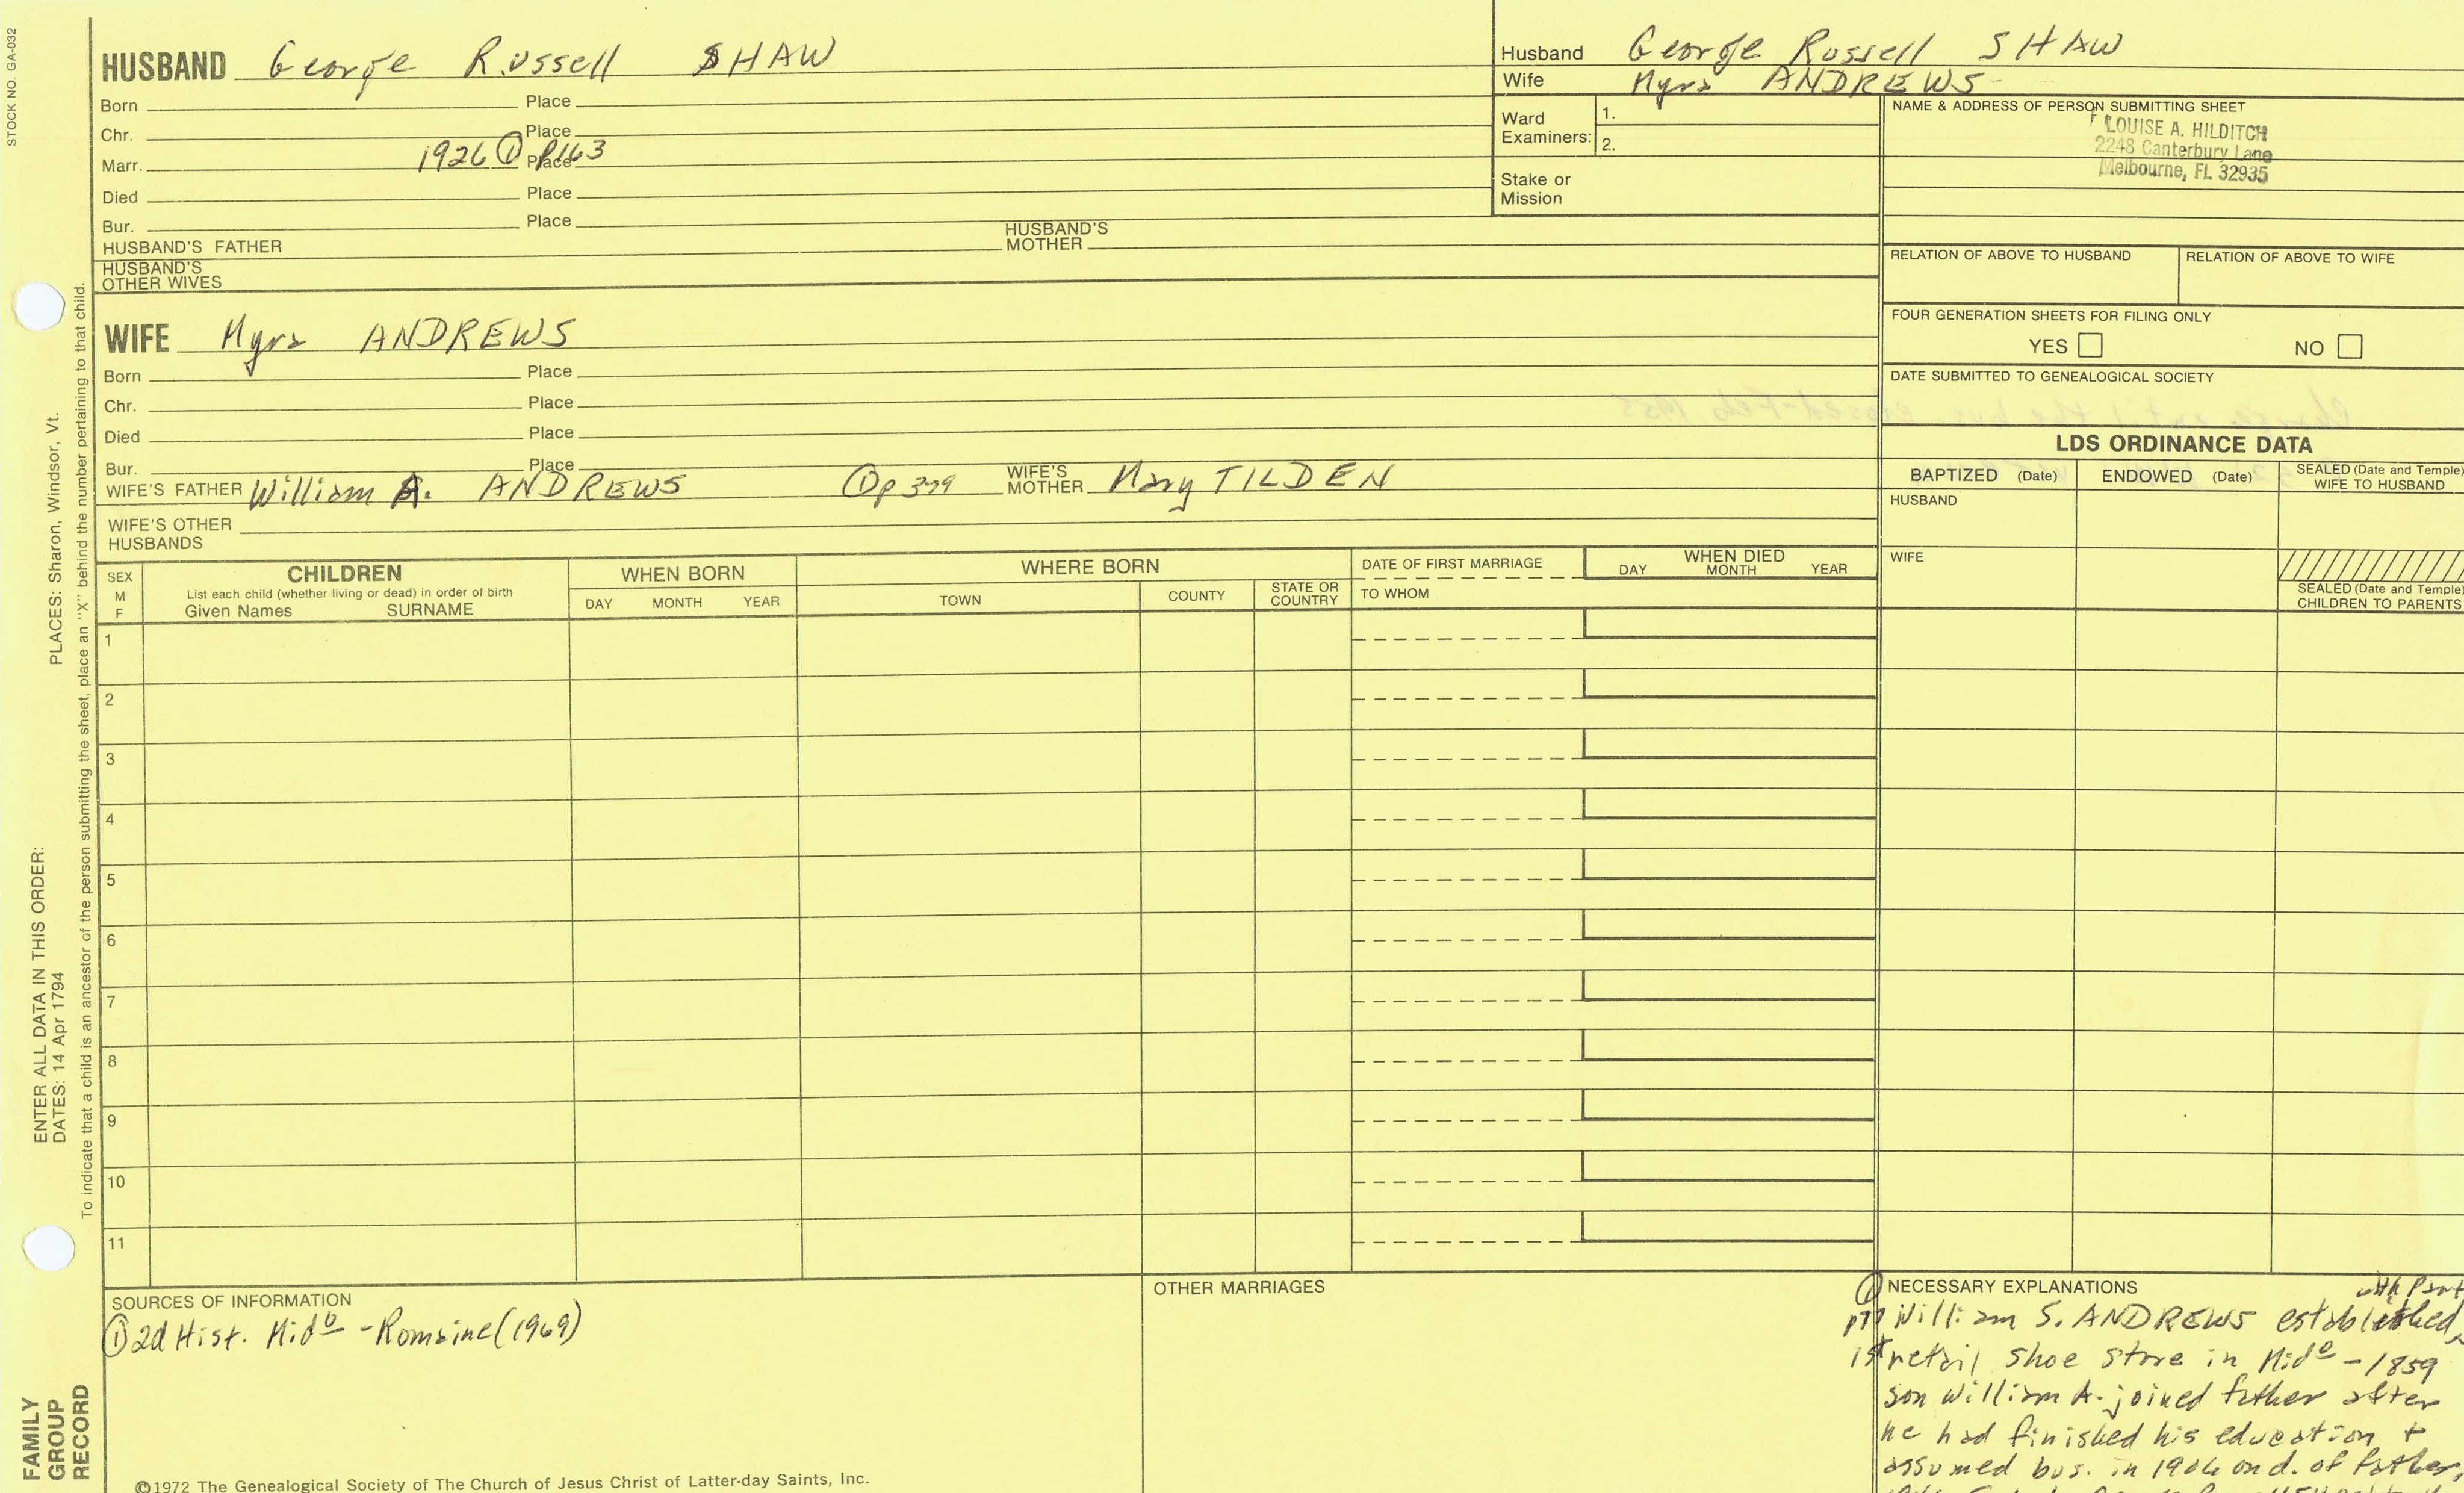 STOCK NO. GA-032
HUSBAND George Russell SHAW
Born Place
Chr. Place
Marr. 1926 ① P163 Place
Died Place
Bur. Place
HUSBAND'S FATHER
HUSBAND'S MOTHER
HUSBAND'S OTHER WIVES
Husband George Russell SHAW
Wife Myra ANDREWS
Ward Examiners: 1.
2.
Stake or Mission
NAME & ADDRESS OF PERSON SUBMITTING SHEET
LOUISE A. HILDITCH
2248 Canterbury Lane
Melbourne, FL 32935
RELATION OF ABOVE TO HUSBAND
RELATION OF ABOVE TO WIFE
FOUR GENERATION SHEETS FOR FILING ONLY
YES NO
DATE SUBMITTED TO GENEALOGICAL SOCIETY
WIFE Myra ANDREWS
Born Place
Chr. Place
Died Place
Bur. Place
WIFE'S FATHER William A. ANDREWS ① p 379
WIFE'S MOTHER Mary TILDEN
WIFE'S OTHER HUSBANDS
LDS ORDINANCE DATA
BAPTIZED (Date) ENDOWED (Date) SEALED (Date and Temple) WIFE TO HUSBAND
HUSBAND
WIFE
SEALED (Date and Temple) CHILDREN TO PARENTS
SEX M F
CHILDREN
List each child (whether living or dead) in order of birth
Given Names SURNAME
WHEN BORN
DAY MONTH YEAR
WHERE BORN
TOWN COUNTY STATE OR COUNTRY
DATE OF FIRST MARRIAGE
TO WHOM
WHEN DIED
DAY MONTH YEAR
1
2
3
4
5
6
7
8
9
10
11
SOURCES OF INFORMATION
① 2d Hist. Mido - Romaine (1969)
OTHER MARRIAGES
① NECESSARY EXPLANATIONS
William S. ANDREWS established
1st retail shoe store in Mido - 1859
son William A. joined father after
he had finished his education +
assumed bus. in 1906 on d. of father,
©1972 The Genealogical Society of The Church of Jesus Christ of Latter-day Saints, Inc.
FAMILY GROUP RECORD
ENTER ALL DATA IN THIS ORDER:
DATES: 14 Apr 1794
PLACES: Sharon, Windsor, Vt.
To indicate that a child is an ancestor of the person submitting the sheet, place an "X" behind the number pertaining to that child.